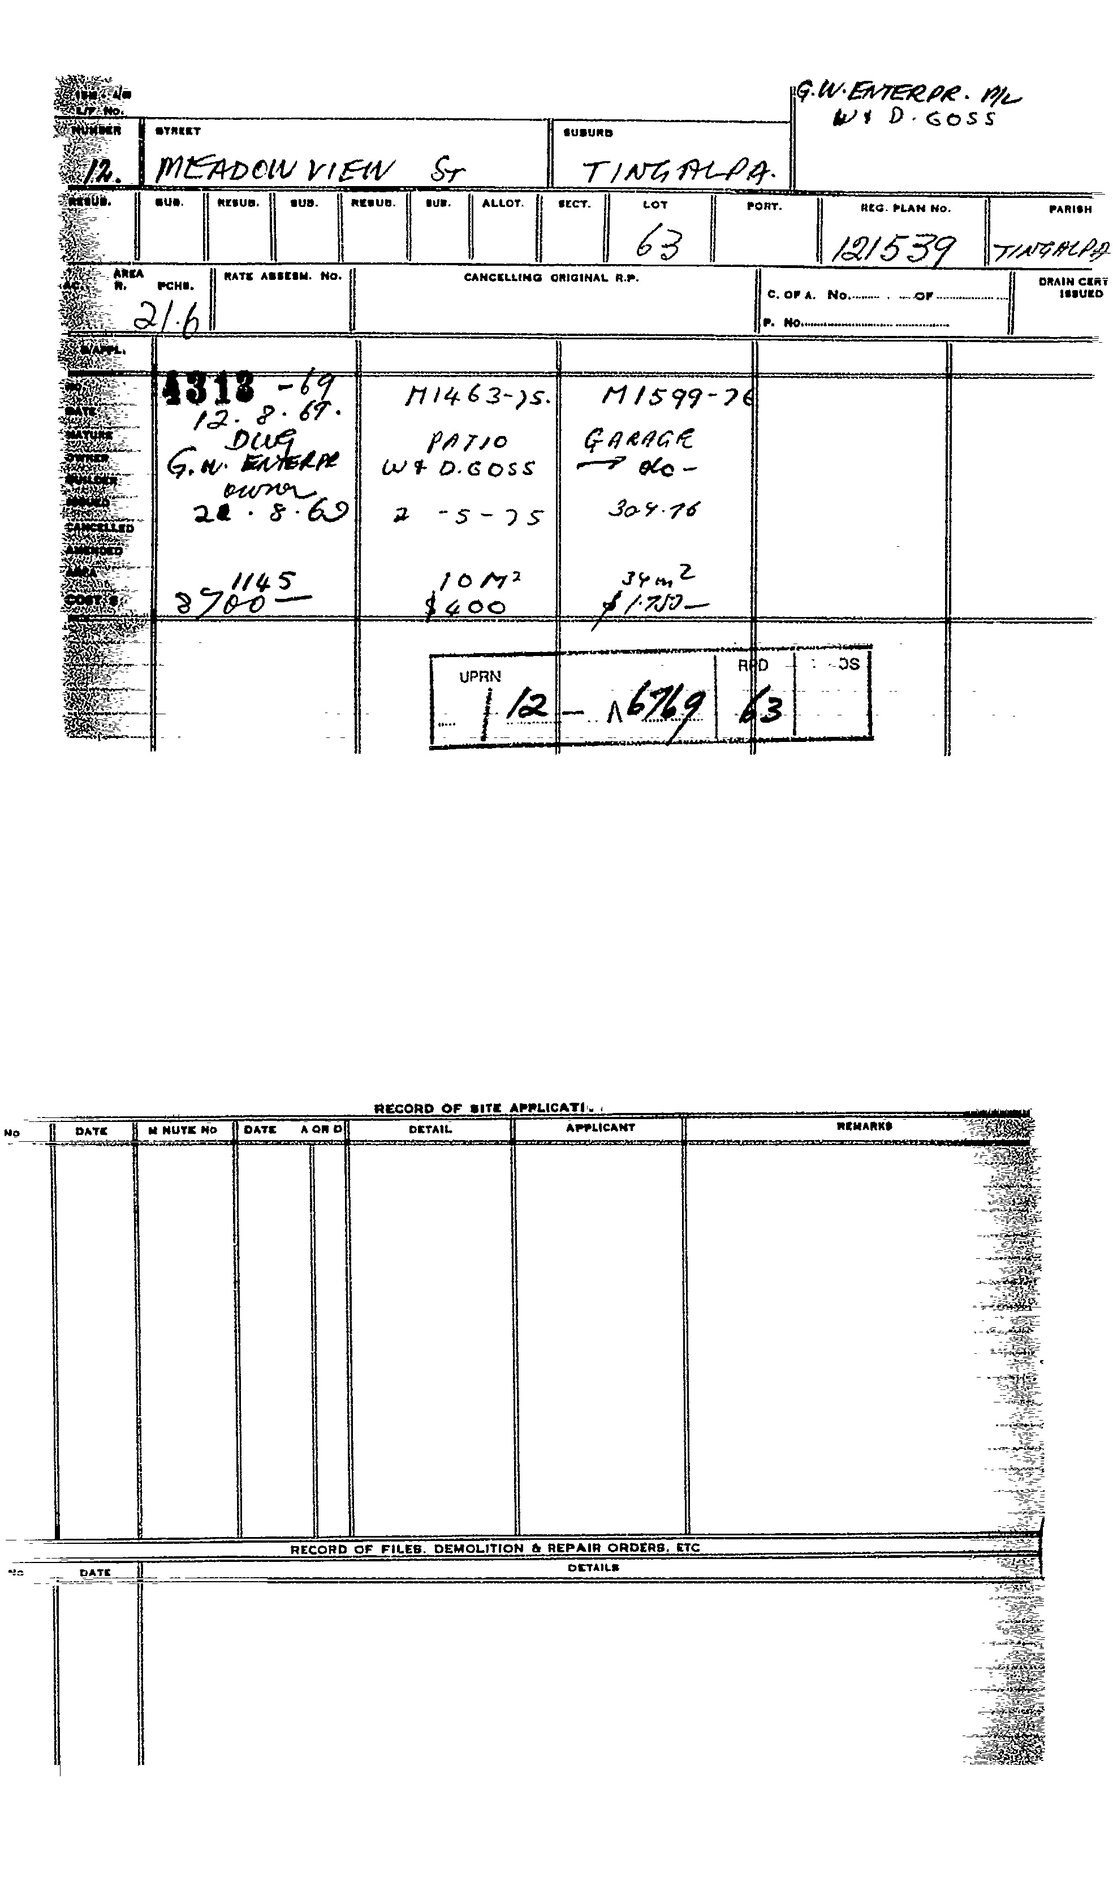 G.W. ENTERPR. P/L
W & D. GOSS
L/P No.
NUMBER STREET SUBURB
12. MEADOW VIEW ST TINGALPA.
RESUB. SUB. RESUB. SUB. RESUB. SUB. ALLOT. SECT. LOT PORT. REG. PLAN No. PARISH
63 121539 TINGALPA
AREA RATE ASSESM. No. CANCELLING ORIGINAL R.P. DRAIN CERT
AC. R. PCHS. C. OF A. No. OF ISSUED
21.6 P. No.
B/APPL.
NO. 4313 -69 M1463-75. M1599-76
DATE 12.8.69.
NATURE DWG PATIO GARAGE
OWNER G.W. ENTERPR W & D. GOSS do-
BUILDER owner
ISSUED 8.69 2-5-75 30.4.76
CANCELLED
AMENDED
AREA 1145 10 M² 34 m²
COST $ 8700— $400 $1.750—
UPRN RPD
12 — 6769 63
RECORD OF SITE
No DATE MINUTE No DATE A OR D DETAIL APPLICANT REMARKS
RECORD OF FILES. DEMOLITION & REPAIR ORDERS, ETC
No DATE DETAILS